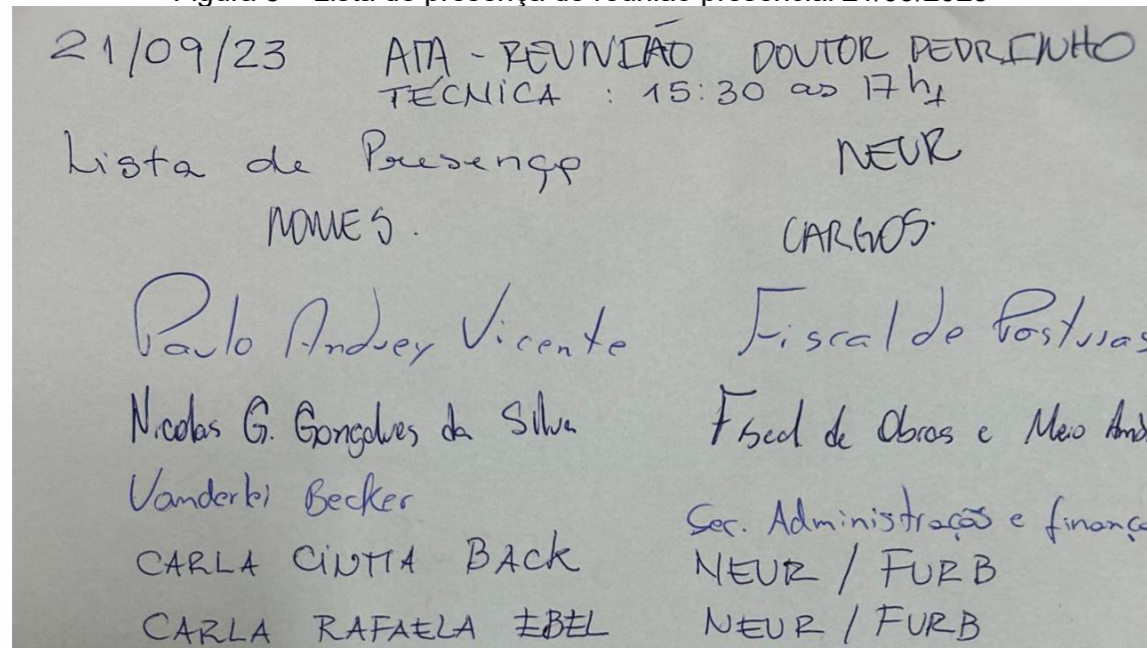 Lista de presença de reunião presencial 21/09/2023
21/09/23 ATA - REUNIÃO DOUTOR PEDRINHO
TÉCNICA : 15:30 as 17h
Lista de Presença NEUR
NOMES. CARGOS.
Paulo Andrey Vicente Fiscal de Posturas
Nicolas G. Gonçalves da Silva Fiscal de Obras e Meio Amb
Vanderlei Becker Sec. Administração e finança
CARLA CINTIA BACK NEUR / FURB
CARLA RAFAELA EBEL NEUR / FURB